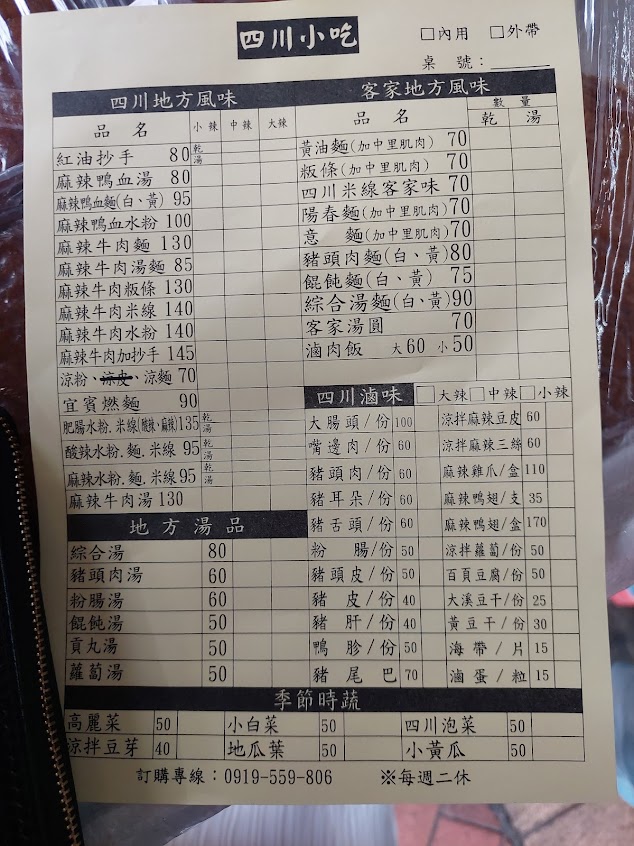 四川小吃
□內用 □外帶
桌號：
四川地方風味
品名 小辣 中辣 大辣
紅油抄手 80 乾 湯
麻辣鴨血湯 80
麻辣鴨血麵(白、黃) 95
麻辣鴨血水粉 100
麻辣牛肉麵 130
麻辣牛肉湯麵 85
麻辣牛肉粄條 130
麻辣牛肉米線 140
麻辣牛肉水粉 140
麻辣牛肉加抄手 145
涼粉、涼皮、涼麵 70
宜賓燃麵 90
肥腸水粉.米線(酸辣、麻辣)135 乾 湯
酸辣水粉.麵.米線 95 乾 湯
麻辣水粉.麵.米線 95 乾 湯
麻辣牛肉湯 130
地方湯品
綜合湯 80
豬頭肉湯 60
粉腸湯 60
餛飩湯 50
貢丸湯 50
蘿蔔湯 50
客家地方風味
品名 數量 乾 湯
黃油麵(加中里肌肉) 70
粄條(加中里肌肉) 70
四川米線客家味 70
陽春麵(加中里肌肉) 70
意麵(加中里肌肉) 70
豬頭肉麵(白、黃) 80
餛飩麵(白、黃) 75
綜合湯麵(白、黃) 90
客家湯圓 70
滷肉飯 大60 小50
四川滷味 □大辣 □中辣 □小辣
大腸頭/份 100 涼拌麻辣豆皮 60
嘴邊肉/份 60 涼拌麻辣三絲 60
豬頭肉/份 60 麻辣雞爪/盒 110
豬耳朵/份 60 麻辣鴨翅/支 35
豬舌頭/份 60 麻辣鴨翅/盒 170
粉腸/份 50 涼拌蘿蔔/份 50
豬頭皮/份 50 百頁豆腐/份 50
豬皮/份 40 大溪豆干/份 25
豬肝/份 40 黃豆干/份 30
鴨胗/份 50 海帶/片 15
豬尾巴 70 滷蛋/粒 15
季節時蔬
高麗菜 50 小白菜 50 四川泡菜 50
涼拌豆芽 40 地瓜葉 50 小黃瓜 50
訂購專線：0919-559-806 ※每週二休